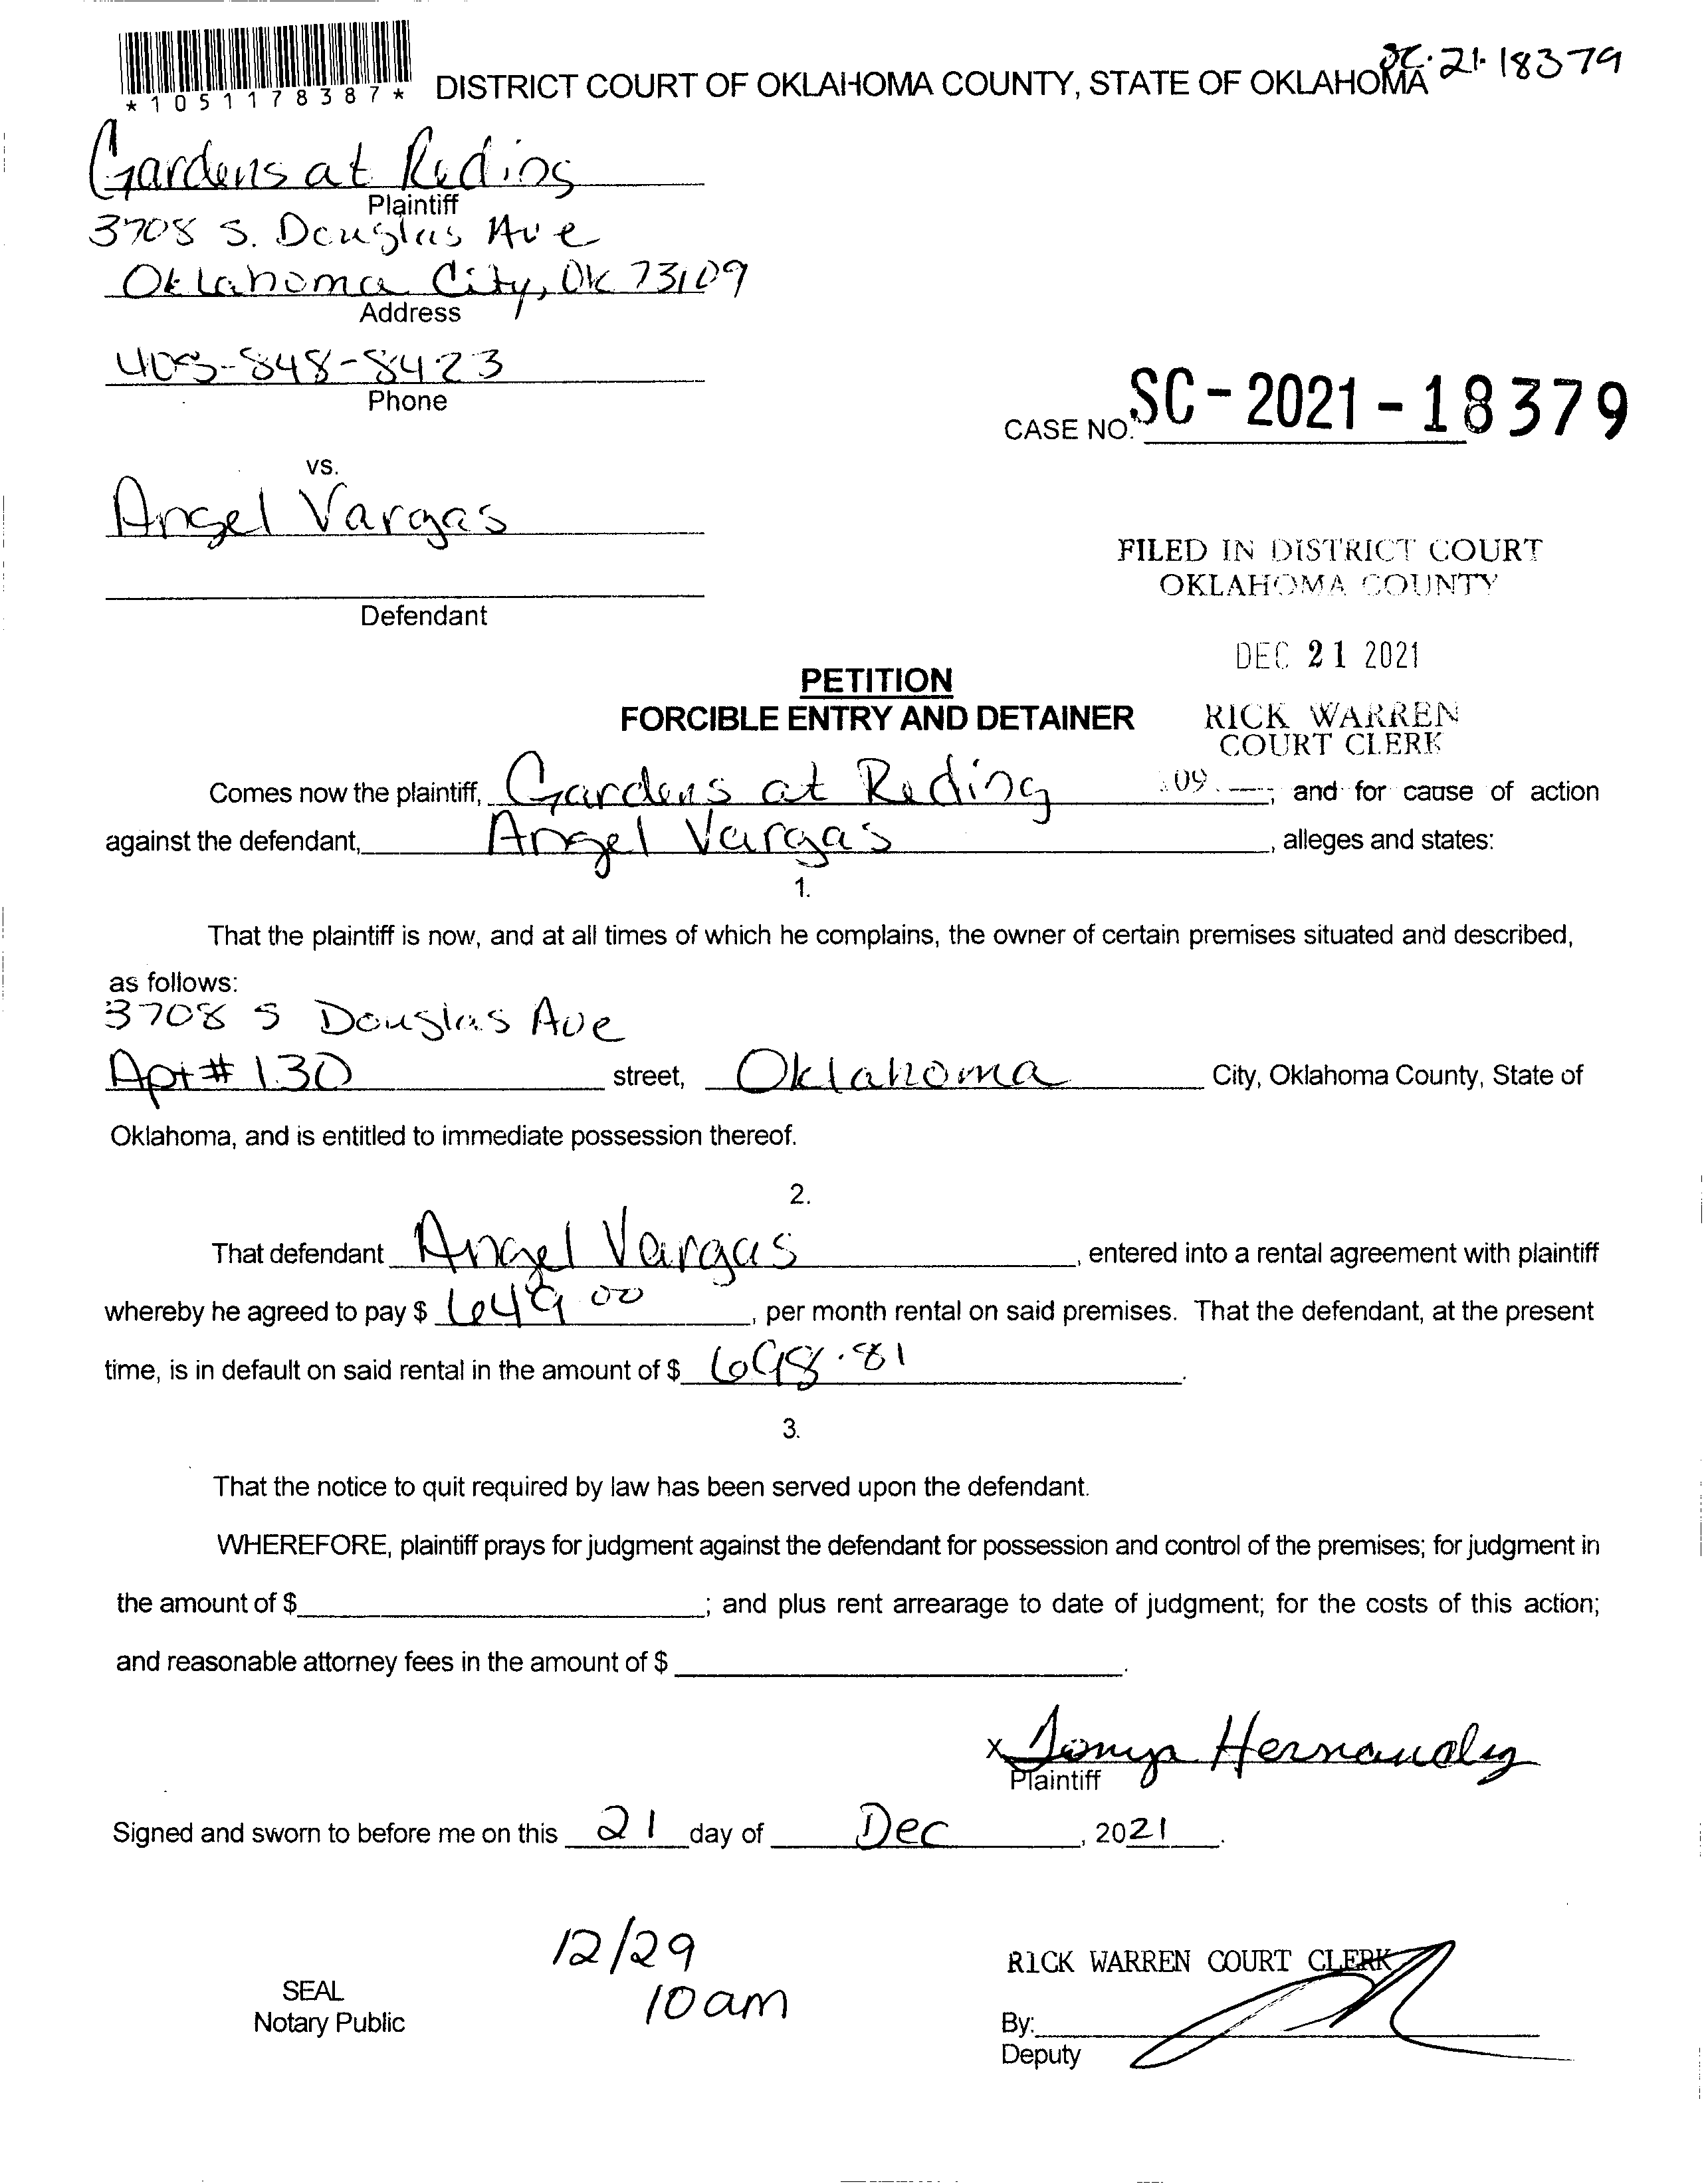 DISTRICT COURT OF OKLAHOMA COUNTY, STATE OF OKLAHOMA SC-21-18379
*1051178387*
Gardens at Reding
Plaintiff
3708 S. Douglas Ave
Oklahoma City, OK 73109
Address
405-848-8423
Phone
CASE NO. SC-2021-18379
vs.
Angel Vargas
Defendant
FILED IN DISTRICT COURT
OKLAHOMA COUNTY
DEC 21 2021
RICK WARREN
COURT CLERK
109
PETITION
FORCIBLE ENTRY AND DETAINER
Comes now the plaintiff, Gardens at Reding ; and for cause of action
against the defendant, Angel Vargas , alleges and states:
1.
That the plaintiff is now, and at all times of which he complains, the owner of certain premises situated and described,
as follows:
3708 S Douglas Ave
Apt# 130 street, Oklahoma City, Oklahoma County, State of
Oklahoma, and is entitled to immediate possession thereof.
2.
That defendant Angel Vargas , entered into a rental agreement with plaintiff
whereby he agreed to pay $ 649.00 , per month rental on said premises. That the defendant, at the present
time, is in default on said rental in the amount of $ 698.81 .
3.
That the notice to quit required by law has been served upon the defendant.
WHEREFORE, plaintiff prays for judgment against the defendant for possession and control of the premises; for judgment in
the amount of $ ; and plus rent arrearage to date of judgment; for the costs of this action;
and reasonable attorney fees in the amount of $ .
X Tonya Hernandez
Plaintiff
Signed and sworn to before me on this 21 day of Dec , 2021 .
12/29
10am
SEAL
Notary Public
RICK WARREN COURT CLERK
By:
Deputy